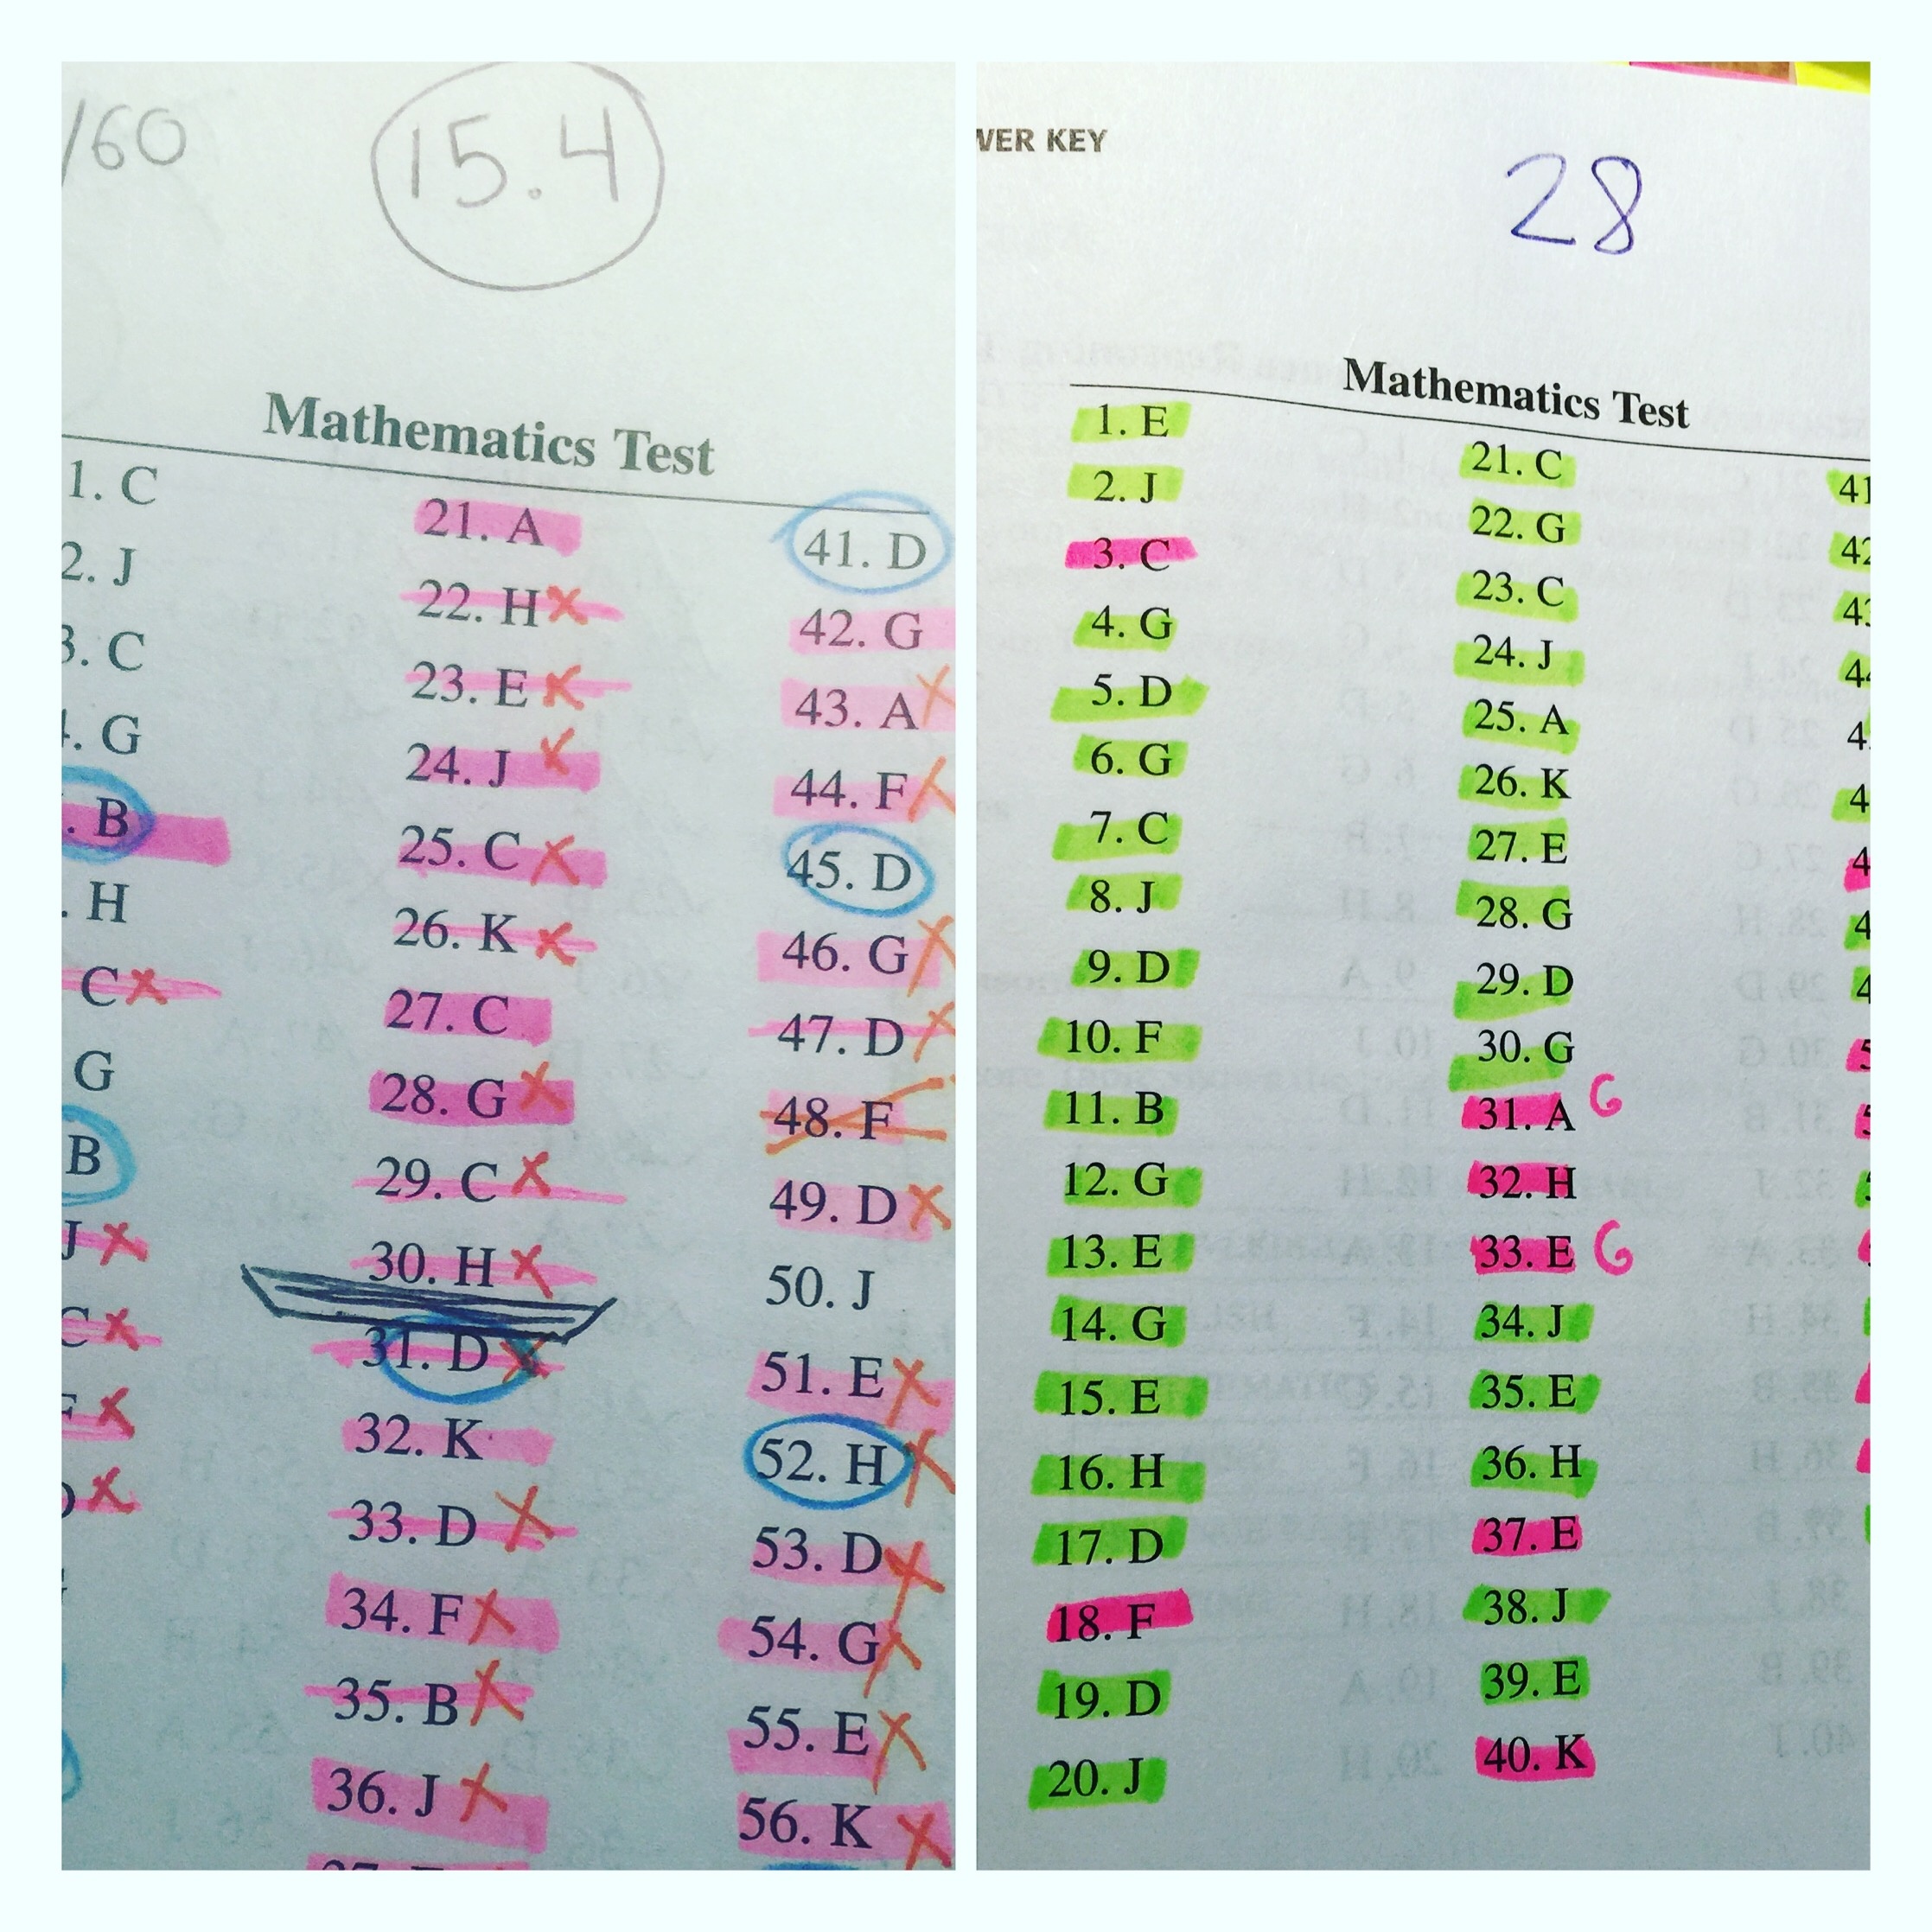 /60
15.4
Mathematics Test
1. C
2. J
3. C
. G
. B
. H
C
G
B
J
C
21. A
22. H
23. E
24. J
25. C
26. K
27. C
28. G
29. C
30. H
31. D
32. K
33. D
34. F
35. B
36. J
41. D
42. G
43. A
44. F
45. D
46. G
47. D
48. F
49. D
50. J
51. E
52. H
53. D
54. G
55. E
56. K
WER KEY
28
Mathematics Test
1. E
2. J
3. C
4. G
5. D
6. G
7. C
8. J
9. D
10. F
11. B
12. G
13. E
14. G
15. E
16. H
17. D
18. F
19. D
20. J
21. C
22. G
23. C
24. J
25. A
26. K
27. E
28. G
29. D
30. G
31. A G
32. H
33. E G
34. J
35. E
36. H
37. E
38. J
39. E
40. K
41
42
43
44
4
4
4
4
4